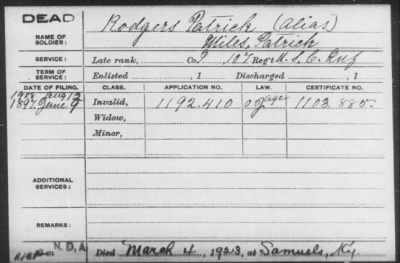 DEAD
Rodgers Patrick (alias)
NAME OF SOLDIER: Miles, Patrick
SERVICE: Late rank, Co. 107 Reg't U.S.C. Inf
TERM OF SERVICE: Enlisted , 1 Discharged , 1
DATE OF FILING. CLASS. APPLICATION NO. LAW. CERTIFICATE NO.
Aug 12
1897 June 9 Invalid, 1192.410 age 1103.885.
Widow,
Minor,
ADDITIONAL SERVICES:
REMARKS:
N.D.A.
Died March 4, 1923, at Samuels, Ky.